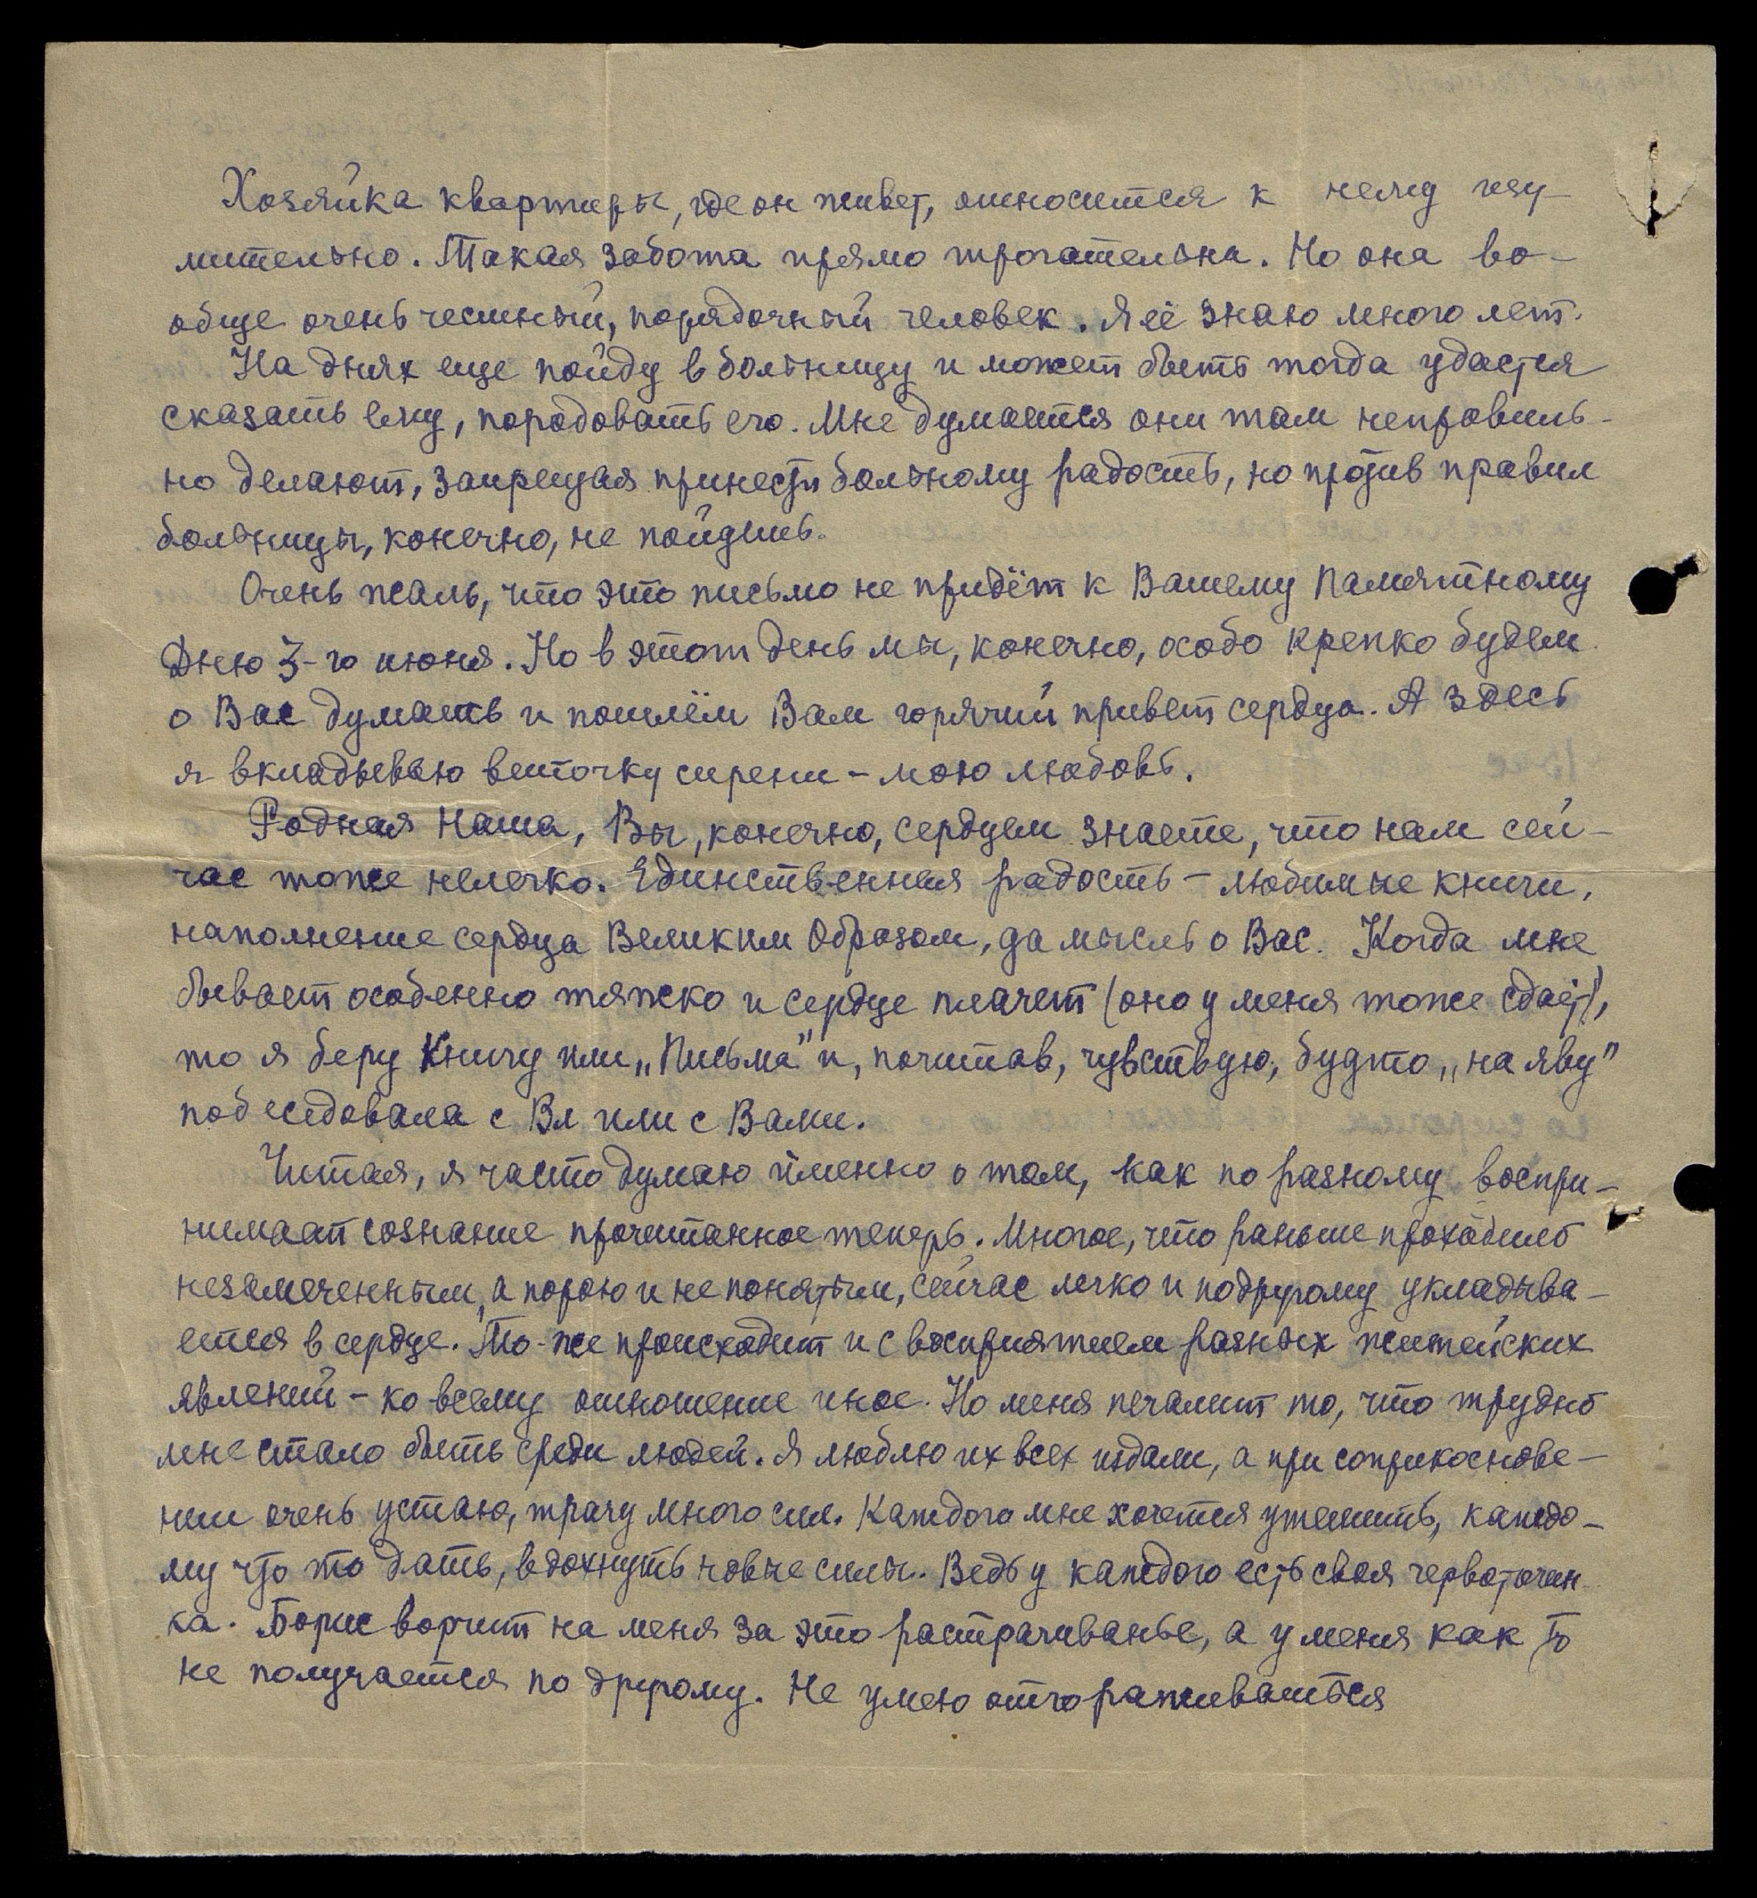 Хозяйка квартиры, где он живет, относится к нему изу-
мительно. Такая забота прямо трогательна. Но она во-
обще очень честный, порядочный человек. Я её знаю много лет.
На днях еще пойду в больницу и может быть тогда удастся
сказать ему, порадовать его. Мне думается они там неправиль-
но делают, запрещая принести больному радость, но против правил
больницы, конечно, не пойдешь.
Очень жаль, что это письмо не придёт к Вашему Памятному
Дню 3-го июня. Но в этот день мы, конечно, особо крепко будем
о Вас думать и пошлём Вам горячий привет сердца. А здесь
я вкладываю веточку сирени – мою любовь.
Родная Наша, Вы, конечно, сердцем знаете, что нам сей-
час тоже нелегко. Единственная радость – любимые книги,
наполнение сердца Великим Образом, да мысль о Вас. Когда мне
бывает особенно тяжко и сердце плачет (оно у меня тоже сдаёт),
то я беру Книгу или „Письма" и, почитав, чувствую, будто „на яву"
побеседовала с Вл или с Вами.
Читая, я часто думаю именно о том, как по разному воспри-
нимает сознание прочитанное теперь. Многое, что раньше проходило
незамеченным, а порою и не понятым, сейчас легко и подругому укладыва-
ется в сердце. То-же происходит и с восприятием разных житейских
явлений – ко всему отношение иное. Но меня печалит то, что трудно
мне стало быть среди людей. Я люблю их всех издали, а при соприкоснове-
нии очень устаю, трачу много сил. Каждого мне хочется утешить, каждо-
му что то дать, вдохнуть новые силы. Ведь у каждого есть своя червоточин-
ка. Борис ворчит на меня за это растрачиванье, а у меня как то
не получается по другому. Не умею отгораживаться